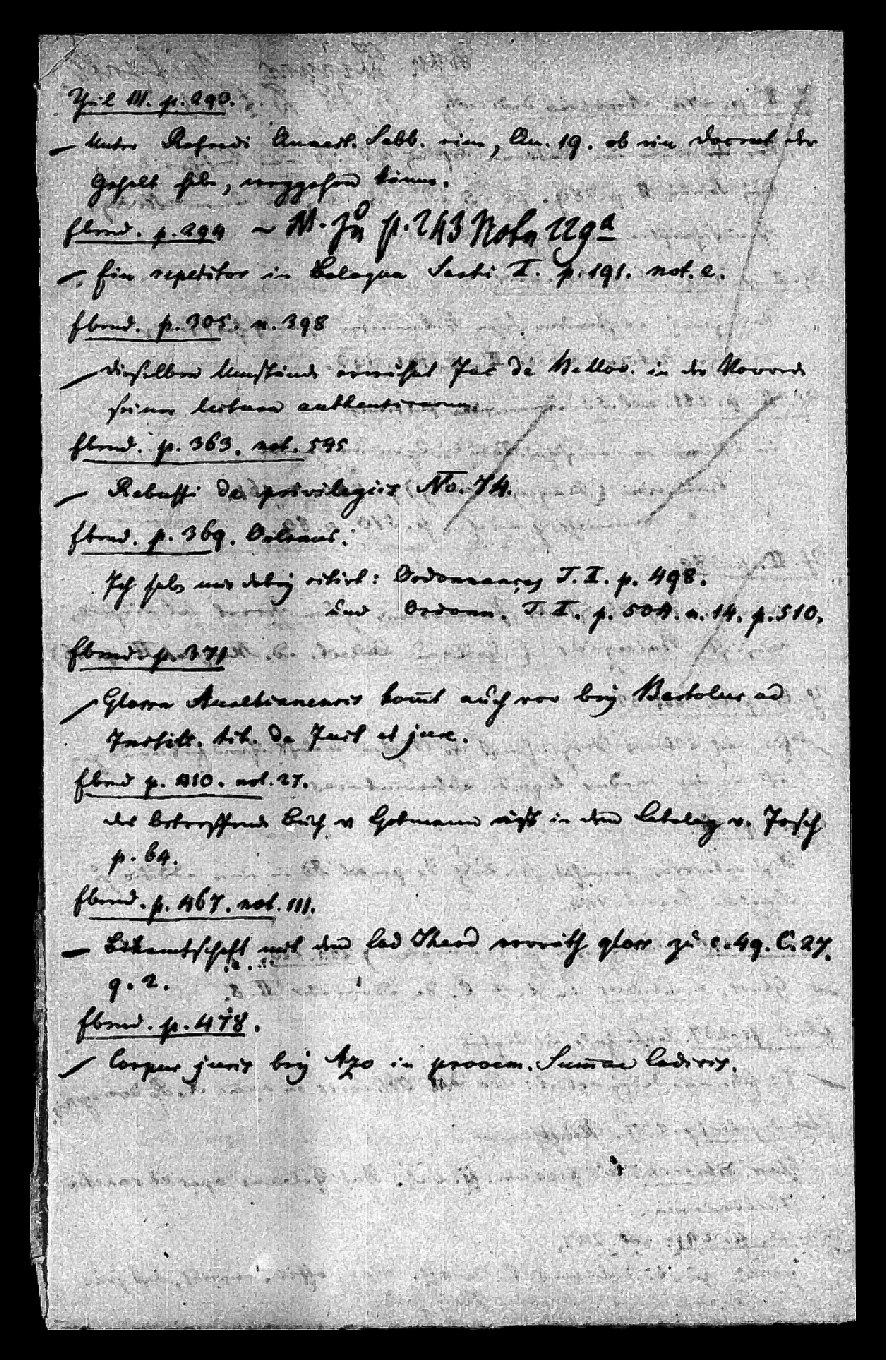 Theil III. p. 290.
Unter Rofredi Quaest. Sabb. eine, Qu. 19. ob ein Docent der
Gehalt habe, weggehen könne.
Ebend. p. 294 ~ III. zu p. 243 Nota 229a
Ein repetitor in Bologna Sarti I. p. 191. not. e.
Ebend. p. 305. n. 398
Dieselben Umstände erwähnt Jac. de in der Vorrede
seiner lectura authenticorum.
Ebend. p. 363. not. 595
Rebuffi de privilegiis No. 74.
Ebend. p. 369. Orleans.
Ich habe mir dabey citirt: Ordonnances T. I. p. 498.
und Ordonn. T. I. p. 504. n. 14. p. 510.
Ebend. p. 371
Glossa Aurelianensis komt auch vor bey Bartolus ad
Institt. tit. de Just. et jure.
Ebend p. 410. not. 27.
das betreffende Buch v in dem Catalog v.
p. 64.
Ebend. p. 467. not. 111.
Bekantschaft mit dem Cod Theod verräth gloss zu c. 49. C. 27.
q. 2.
Ebend. p. 478.
Corpus juris bey Azo in prooem. Summae Codicis.